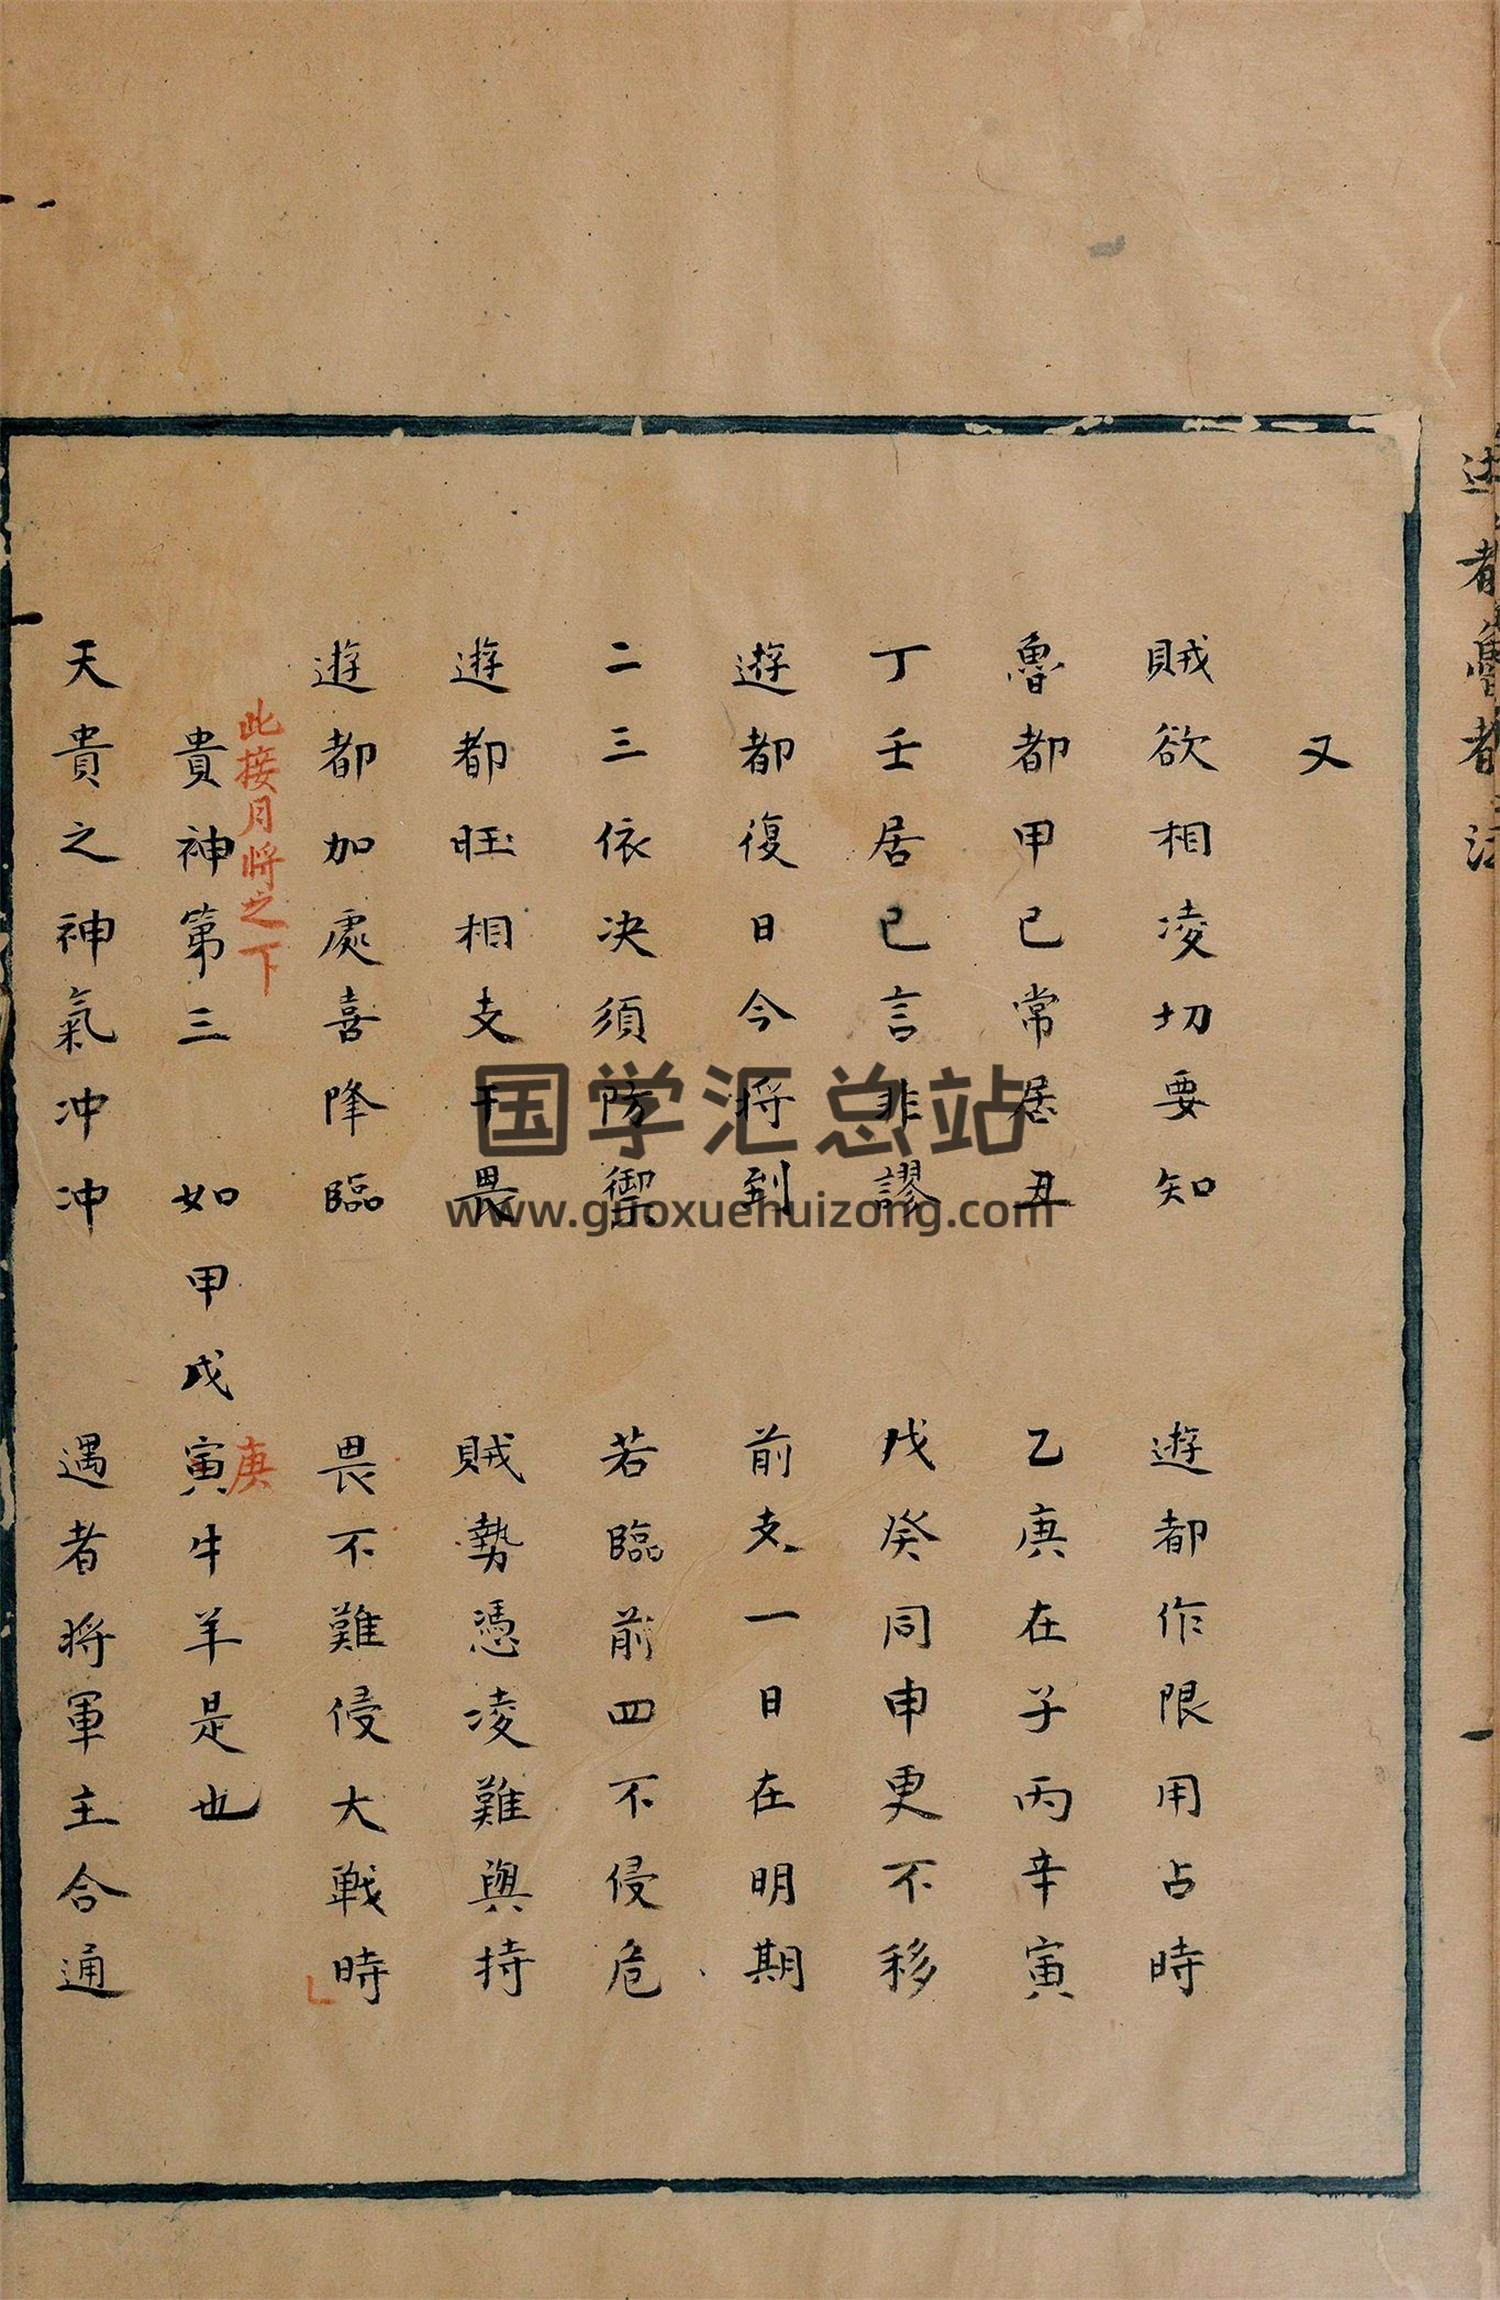 遊都魯都法
又
賊欲相凌切要知　遊都作限用占時
魯都甲己常居丑　乙庚在子丙辛寅
丁壬居巳言非謬　戊癸同申更不移
遊都復日今將到　前支一日在明期
二三依决須防禦　若臨前四不侵危
遊都旺相支干畏　賊勢憑凌難與持
遊都加處喜降臨　畏不難侵大戰時
此接月將之下
貴神第三　如甲戊寅牛羊是也
庚
天貴之神氣冲冲　遇者將軍主合通
国学汇总站
www.guoxuehuizong.com